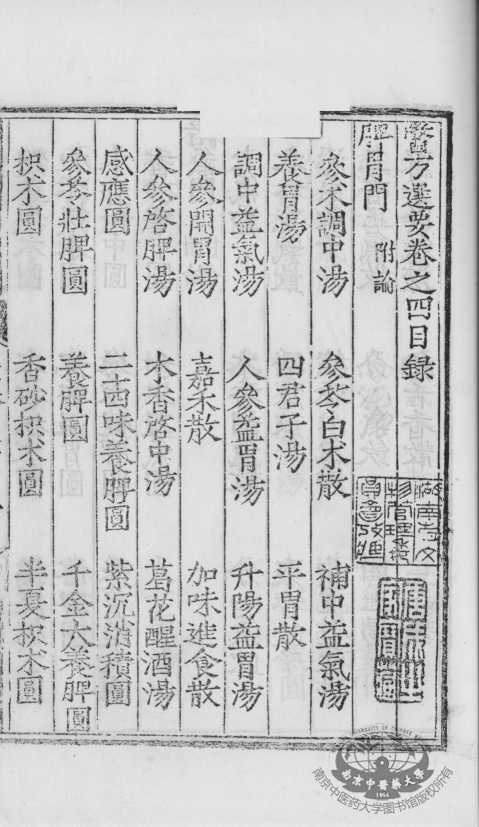 醫方選要卷之四目錄
脾胃門 附論
參朮調中湯 參苓白朮散 補中益氣湯
養胃湯 四君子湯 平胃散
調中益氣湯 人參益胃湯 升陽益胃湯
人參開胃湯 嘉禾散 加味進食散
人參啓脾湯 木香啓中湯 葛花醒酒湯
感應圓 二十四味養脾圓 紫沉消積圓
參苓壯脾圓 養脾圓 千金大養脾圓
枳朮圓 香砂枳朮圓 半夏枳朮圓
南京中醫藥大學
1954
南京中医药大学图书馆版权所有